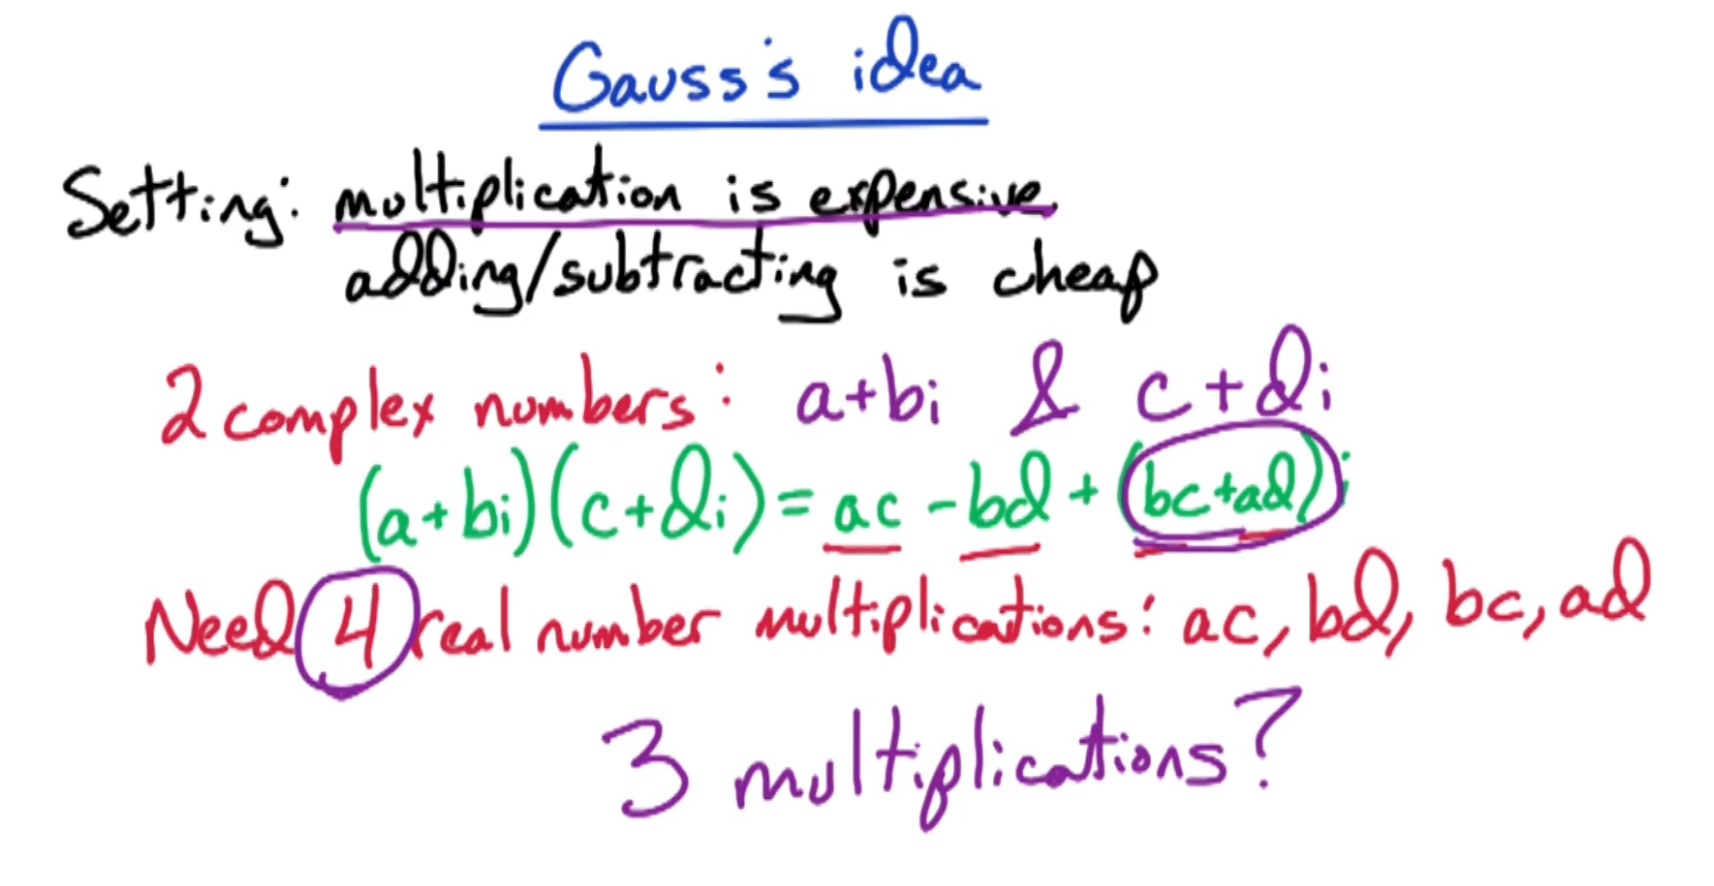 Gauss's idea
Setting: multiplication is expensive.
adding/subtracting is cheap
2 complex numbers: a+bi & c+di
(a+bi)(c+di) = ac - bd + (bc+ad)i
Need 4 real number multiplications: ac, bd, bc, ad
3 multiplications?